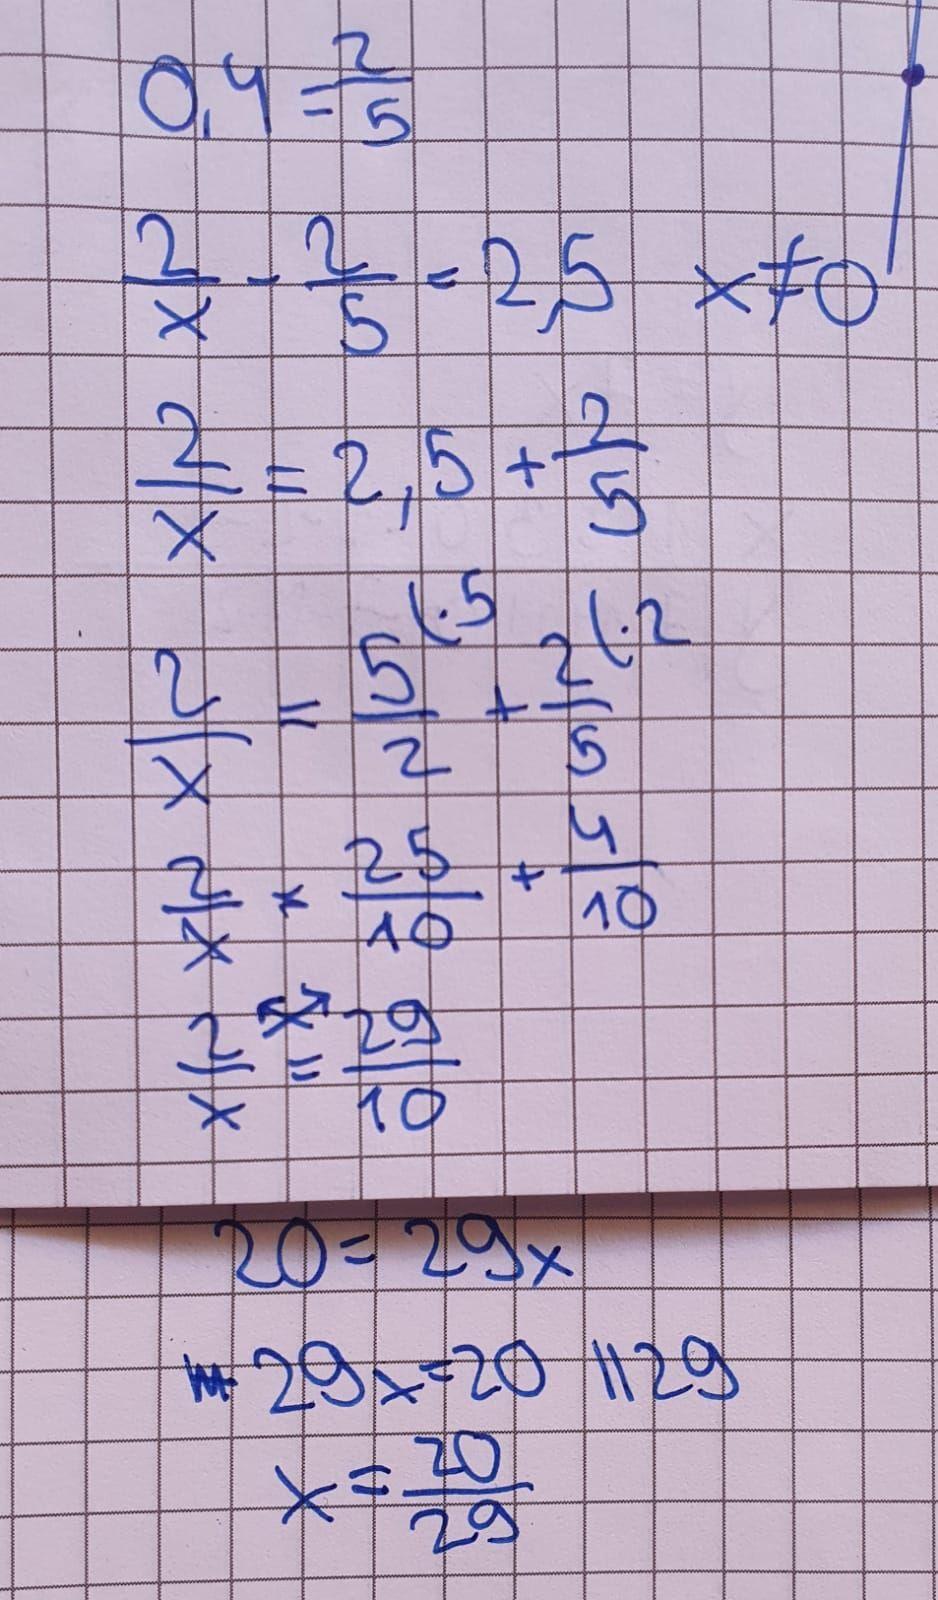 0,4 = 2/5
2/x - 2/5 = 2,5 x ≠ 0
2/x = 2,5 + 2/5
2/x = 5/2 (·5 + 2/5 (·2
2/x = 25/10 + 4/10
2/x = 29/10
20 = 29x
29x = 20 || 29
x = 20/29